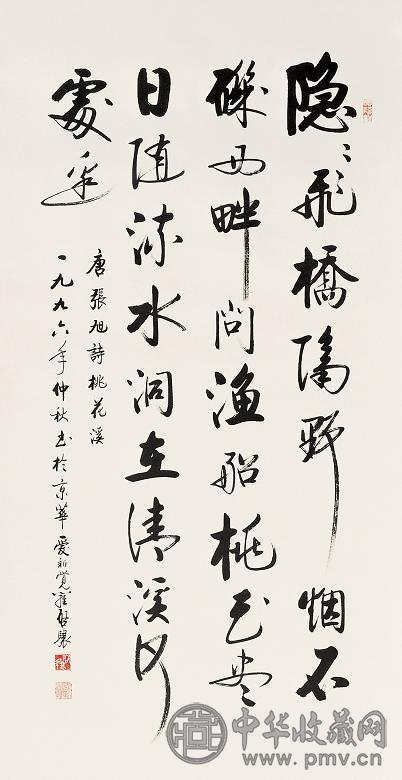 隐〻飛橋隔野烟石
磯西畔问渔船桃花尽
日随流水洞在清溪何
處邊
唐張旭詩桃花溪
一九九六年仲秋书於京華愛新覺羅啓驤
中华收藏网
www.pmv.cn